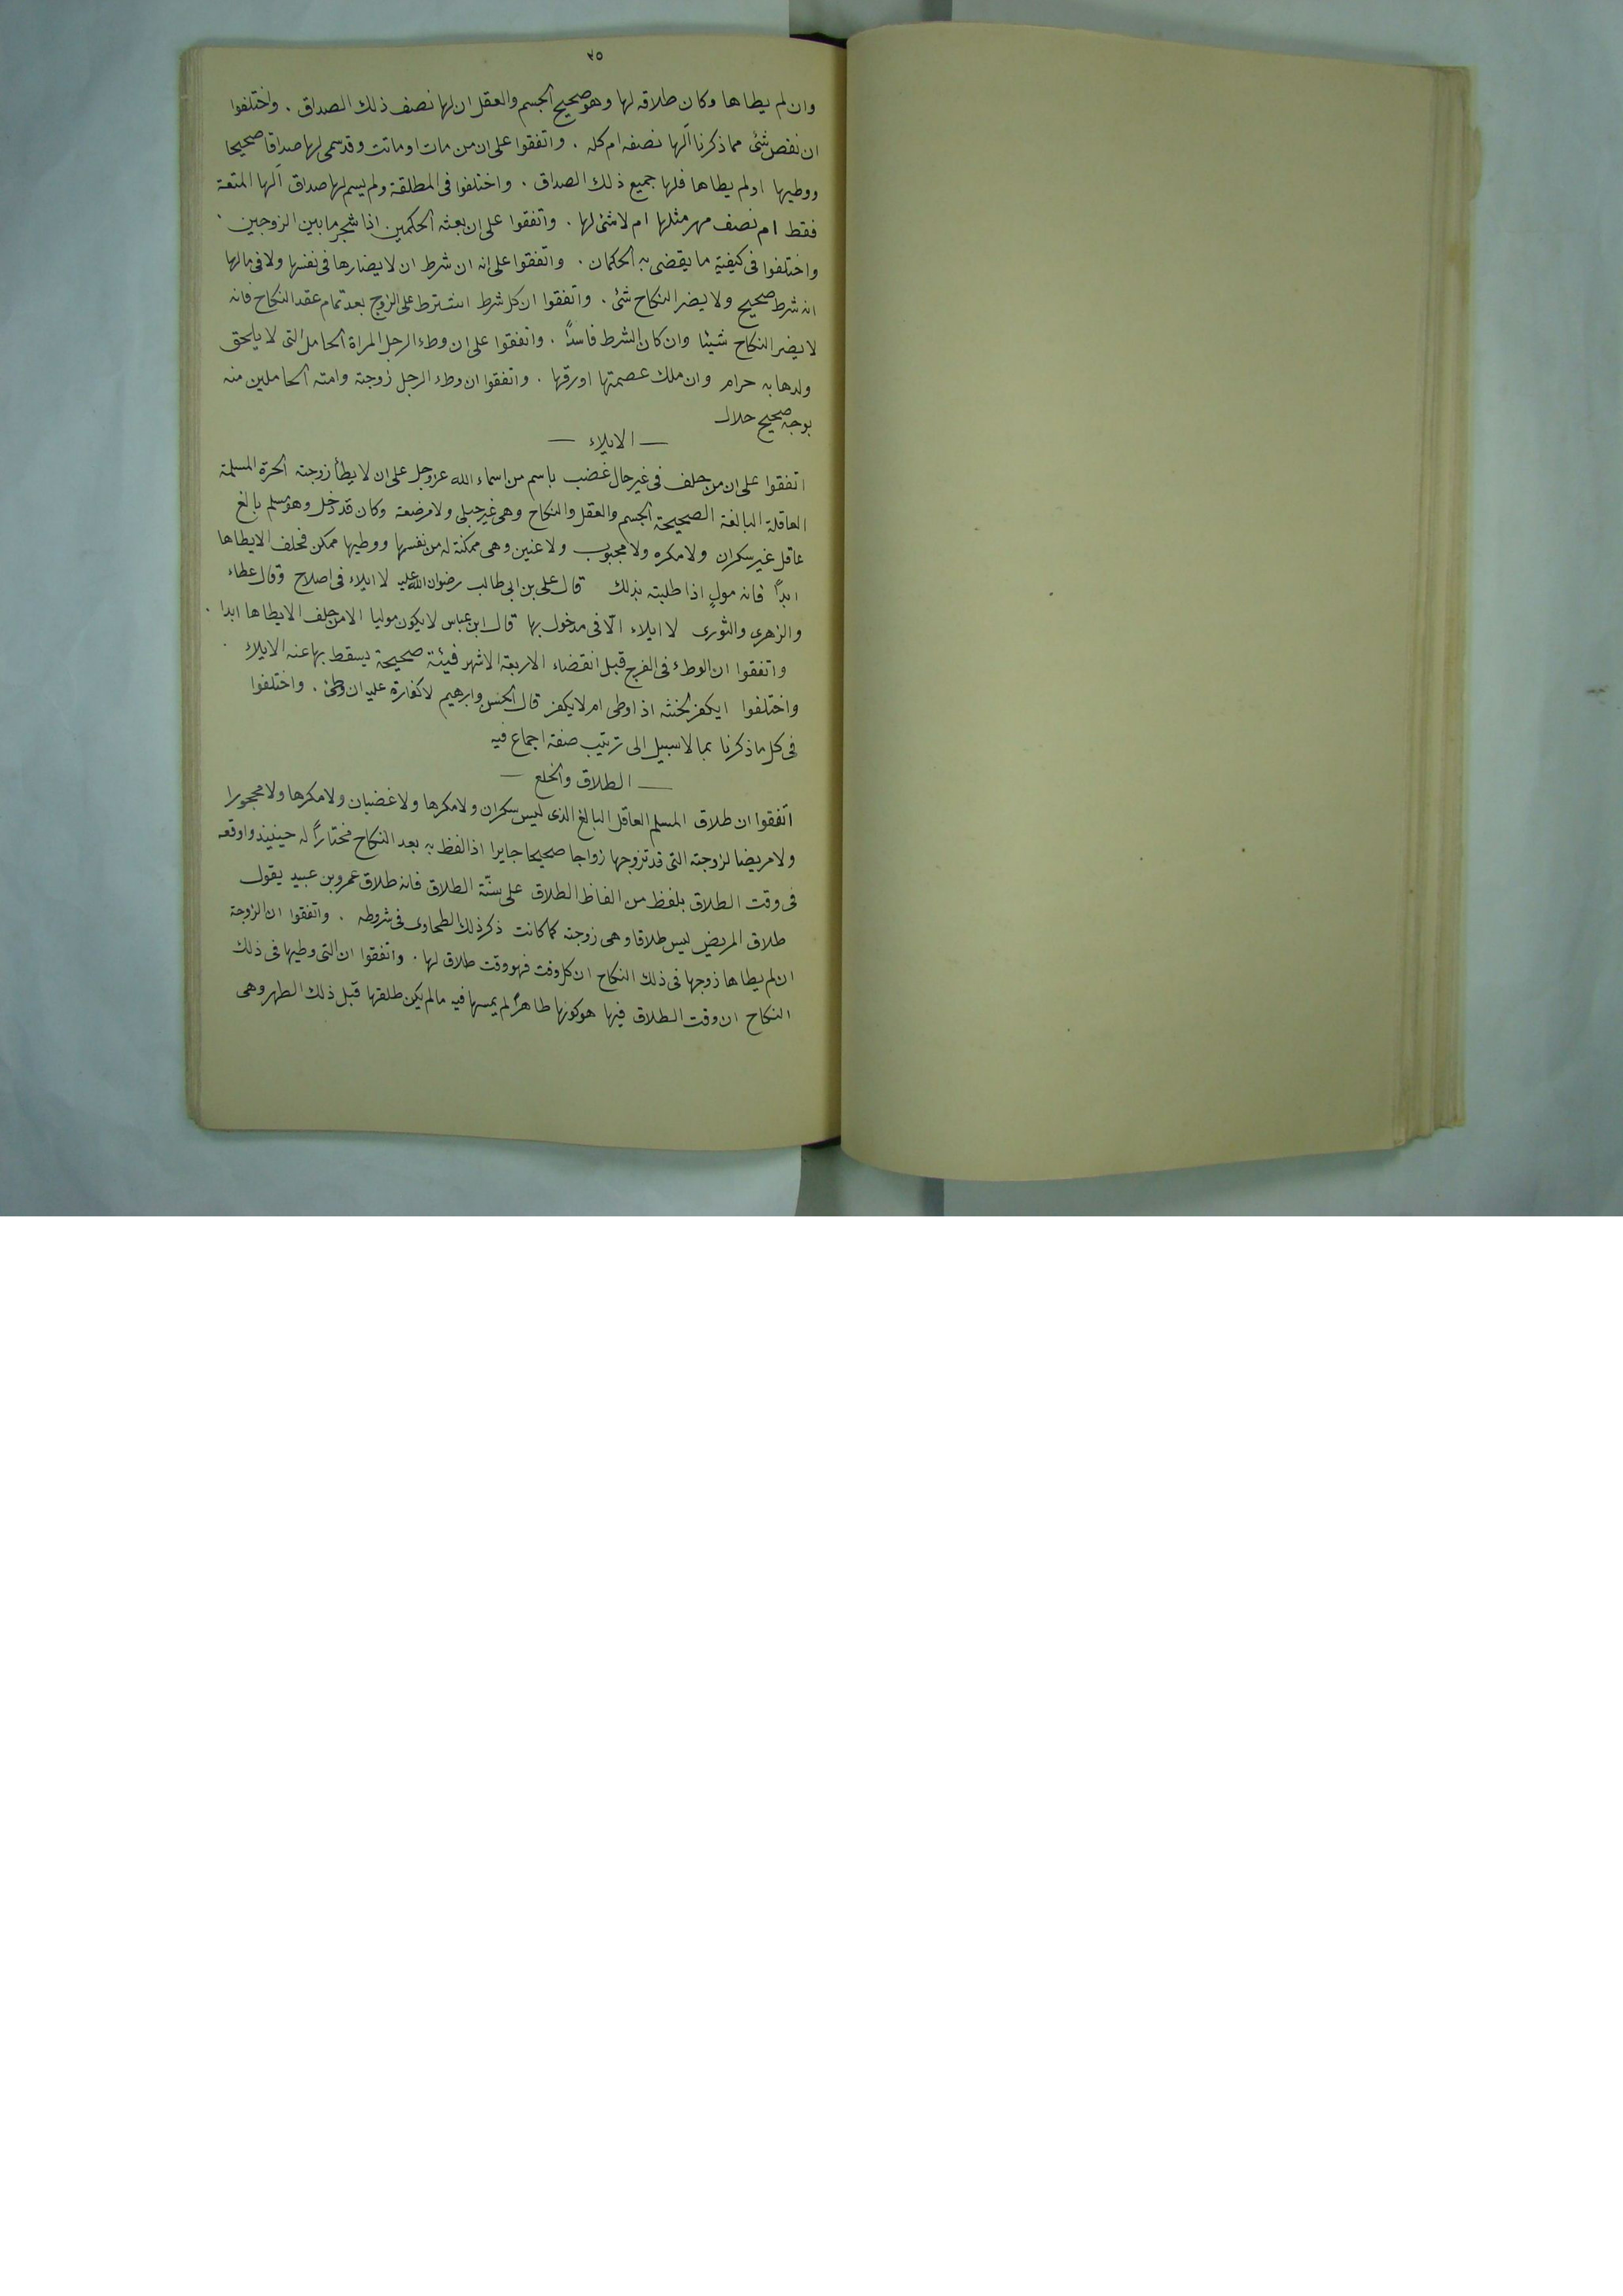 ٣٥
وان لم يطاها وكان طلاقه لها وهو صحيح الجسم والعقل ان لها نصف ذلك الصداق . واختلفوا
ان نقص شئ مما ذكرنا ألها نصفه ام كله . واتفقوا على ان من مات او ماتت وقد سمى لها صداقا صحيحا
ووطيها اولم يطاها فلها جميع ذلك الصداق . واختلفوا فى المطلقة ولم يسم لها صداق ألها المتعة
فقط ام نصف مهر مثلها ام لا شئ لها . واتفقوا على ان بعثه الحكمين اذا شجر ما بين الزوجين .
واختلفوا فى كيفية ما يقضى به الحكمان . واتفقوا على انه ان شرط ان لا يضارها فى نفسها ولا فى مالها
انه شرط صحيح ولا يضر النكاح شئ . واتفقوا ان كل شرط اشترط على الزوج بعد تمام عقد النكاح فانه
لا يضر النكاح شيئا وان كان الشرط فاسداً . واتفقوا على ان وطء الرجل المراة الحامل التى لا يلحق
ولدها به حرام وان ملك عصمتها او رقها . واتفقوا ان وطء الرجل زوجته وامته الحاملين منه
بوجه صحيح حلال
— الايلاء —
اتفقوا على ان من حلف فى غير حال غضب باسم من اسماء الله عز وجل على ان لا يطأ زوجته الحرة المسلمة
العاقلة البالغة الصحيحة الجسم والعقل والنكاح وهى غير حبلى ولا مرضعة وكان قد دخل وهو مسلم بالغ
عاقل غير سكران ولا مكره ولا مجبوب ولا عنين وهى ممكنة له من نفسها ووطيها ممكن فحلف الا يطاها
ابداً فانه مولٍ اذا طلبته بذلك قال على بن ابى طالب رضوان الله عليه لا ايلاء فى اصلاح وقال عطاء
والزهرى والثورى لا ايلاء الّا فى مدخول بها قال ابن عباس لا يكون موليا الا من حلف الا يطاها ابدا .
واتفقوا ان الوطء فى الفرج قبل انقضاء الاربعة الاشهر فيئة صحيحة يسقط بها عنه الايلاء .
واختلفوا ايكفر لحنثه اذا وطى ام لا يكفر قال الحسن وابرهيم لا كفارة عليه ان وطئ . واختلفوا
فى كل ما ذكرنا بما لا سبيل الى ترتيب صفة اجماع فيه
— الطلاق والخلع —
اتفقوا ان طلاق المسلم العاقل البالغ الذى ليس سكران ولا مكرها ولا غضبان ولا مكرها ولا محجورا
ولا مريضا لزوجته التى قد تزوجها زواجا صحيحا جايرا اذا لفظ به بعد النكاح مختاراً له حينيذ واوقعه
فى وقت الطلاق بلفظ من الفاظ الطلاق على سنّة الطلاق فانه طلاق عمرو بن عبيد يقول
طلاق المريض ليس طلاقا وهى زوجته كما كانت ذكر ذلك الطحاوى فى شروطه . واتفقوا ان الزوجة
ان لم يطاها زوجها فى ذلك النكاح ان كل وقت فهو وقت طلاق لها . واتفقوا ان التى وطيها فى ذلك
النكاح ان وقت الطلاق فيها هو كونها طاهراً لم يمسها فيه ما لم يكن طلقها قبل ذلك الطهر وهى